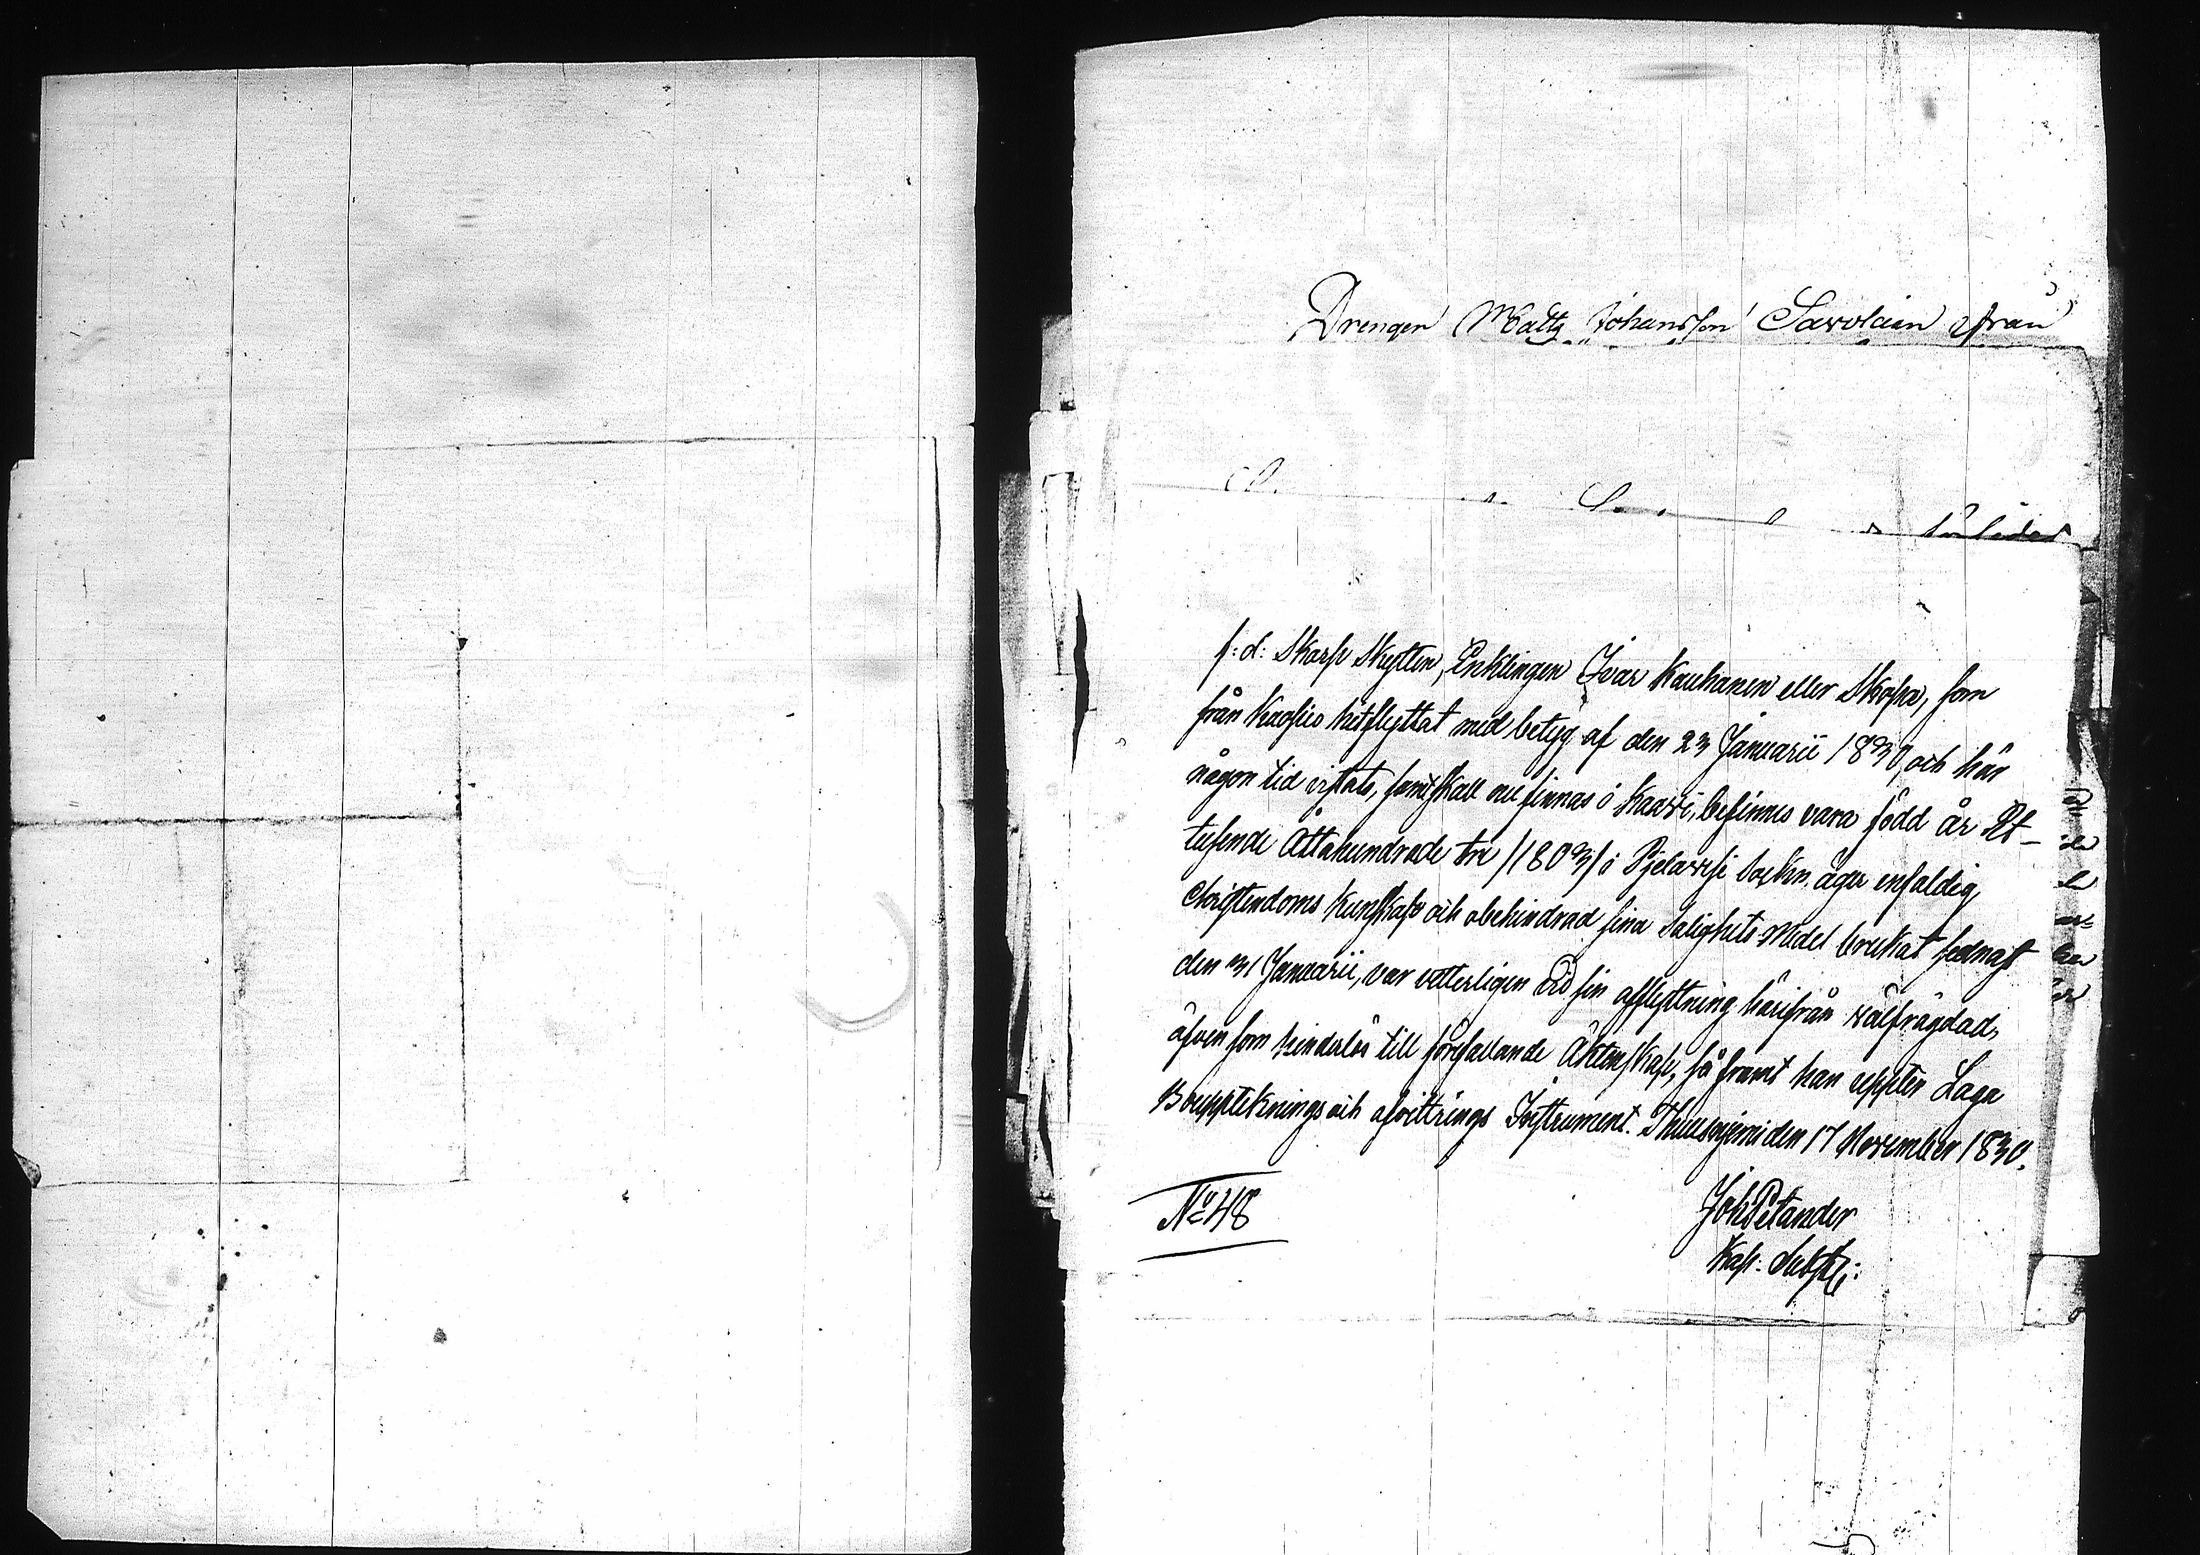 Drengen Matts Johansson Savolain ifrån
förliden
f: d: Skarp Skytten, Enklingen Ivar Kauhanen eller Skopa, som
från Kuopio hitflyttat med betyg af den 23 Januarii 1830, och här
någon tid vistats, samt skall nu finnas i Kaavi, befinnes vara född år Et-
tusende Åttahundrade tre /1803/ i Pjelavesi Socken, äger enfaldig
Christendoms kunskap och obehindrad sina Salighets Medel brukat sednast
den 31 Januarii, var vetterligen vid sin afflyttning härifrån välfrägdad,
äfven som hinderlös till förefallande Äktenskap, så framt han uppter Laga
Bouppteknings och afvittrings Instrument. Thuusnjemi den 17 November 1830.
No 48
Joh Petander
Kap. Subst: